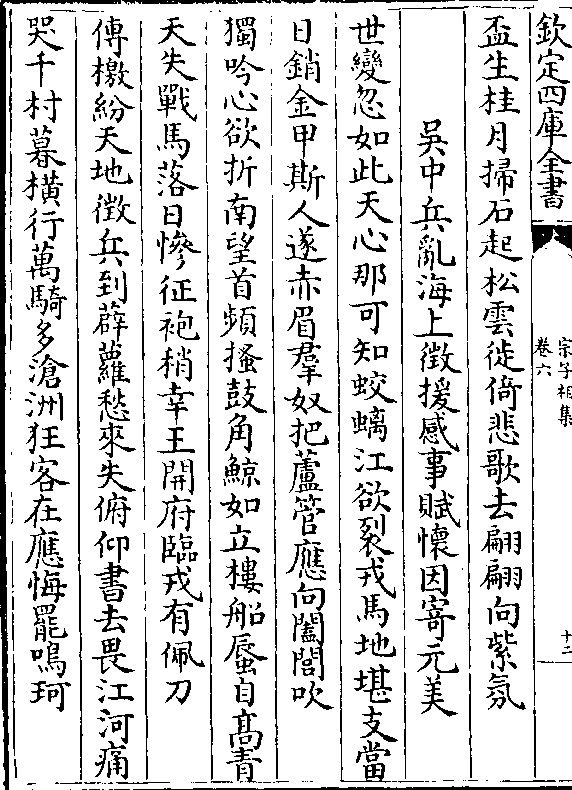 欽定四庫全書
宗子相集
卷六
十二
盃生桂月掃石起松雲徙倚悲歌去翩翩向紫氛
吳中兵亂海上徵援感事賦懷因寄元美
世變忽如此天心那可知蛟螭江欲裂戎馬地堪支當
日銷金甲斯人遂赤眉羣奴把蘆管應向闔閭吹
獨吟心欲折南望首頻搔鼓角鯨如立樓船蜃自髙青
天失戰馬落日慘征袍稍幸王開府臨戎有佩刀
傳檄紛天地徵兵到薜蘿愁來失俯仰書去畏江河痛
哭千村暮横行萬騎多滄洲狂客在應悔罷鳴珂